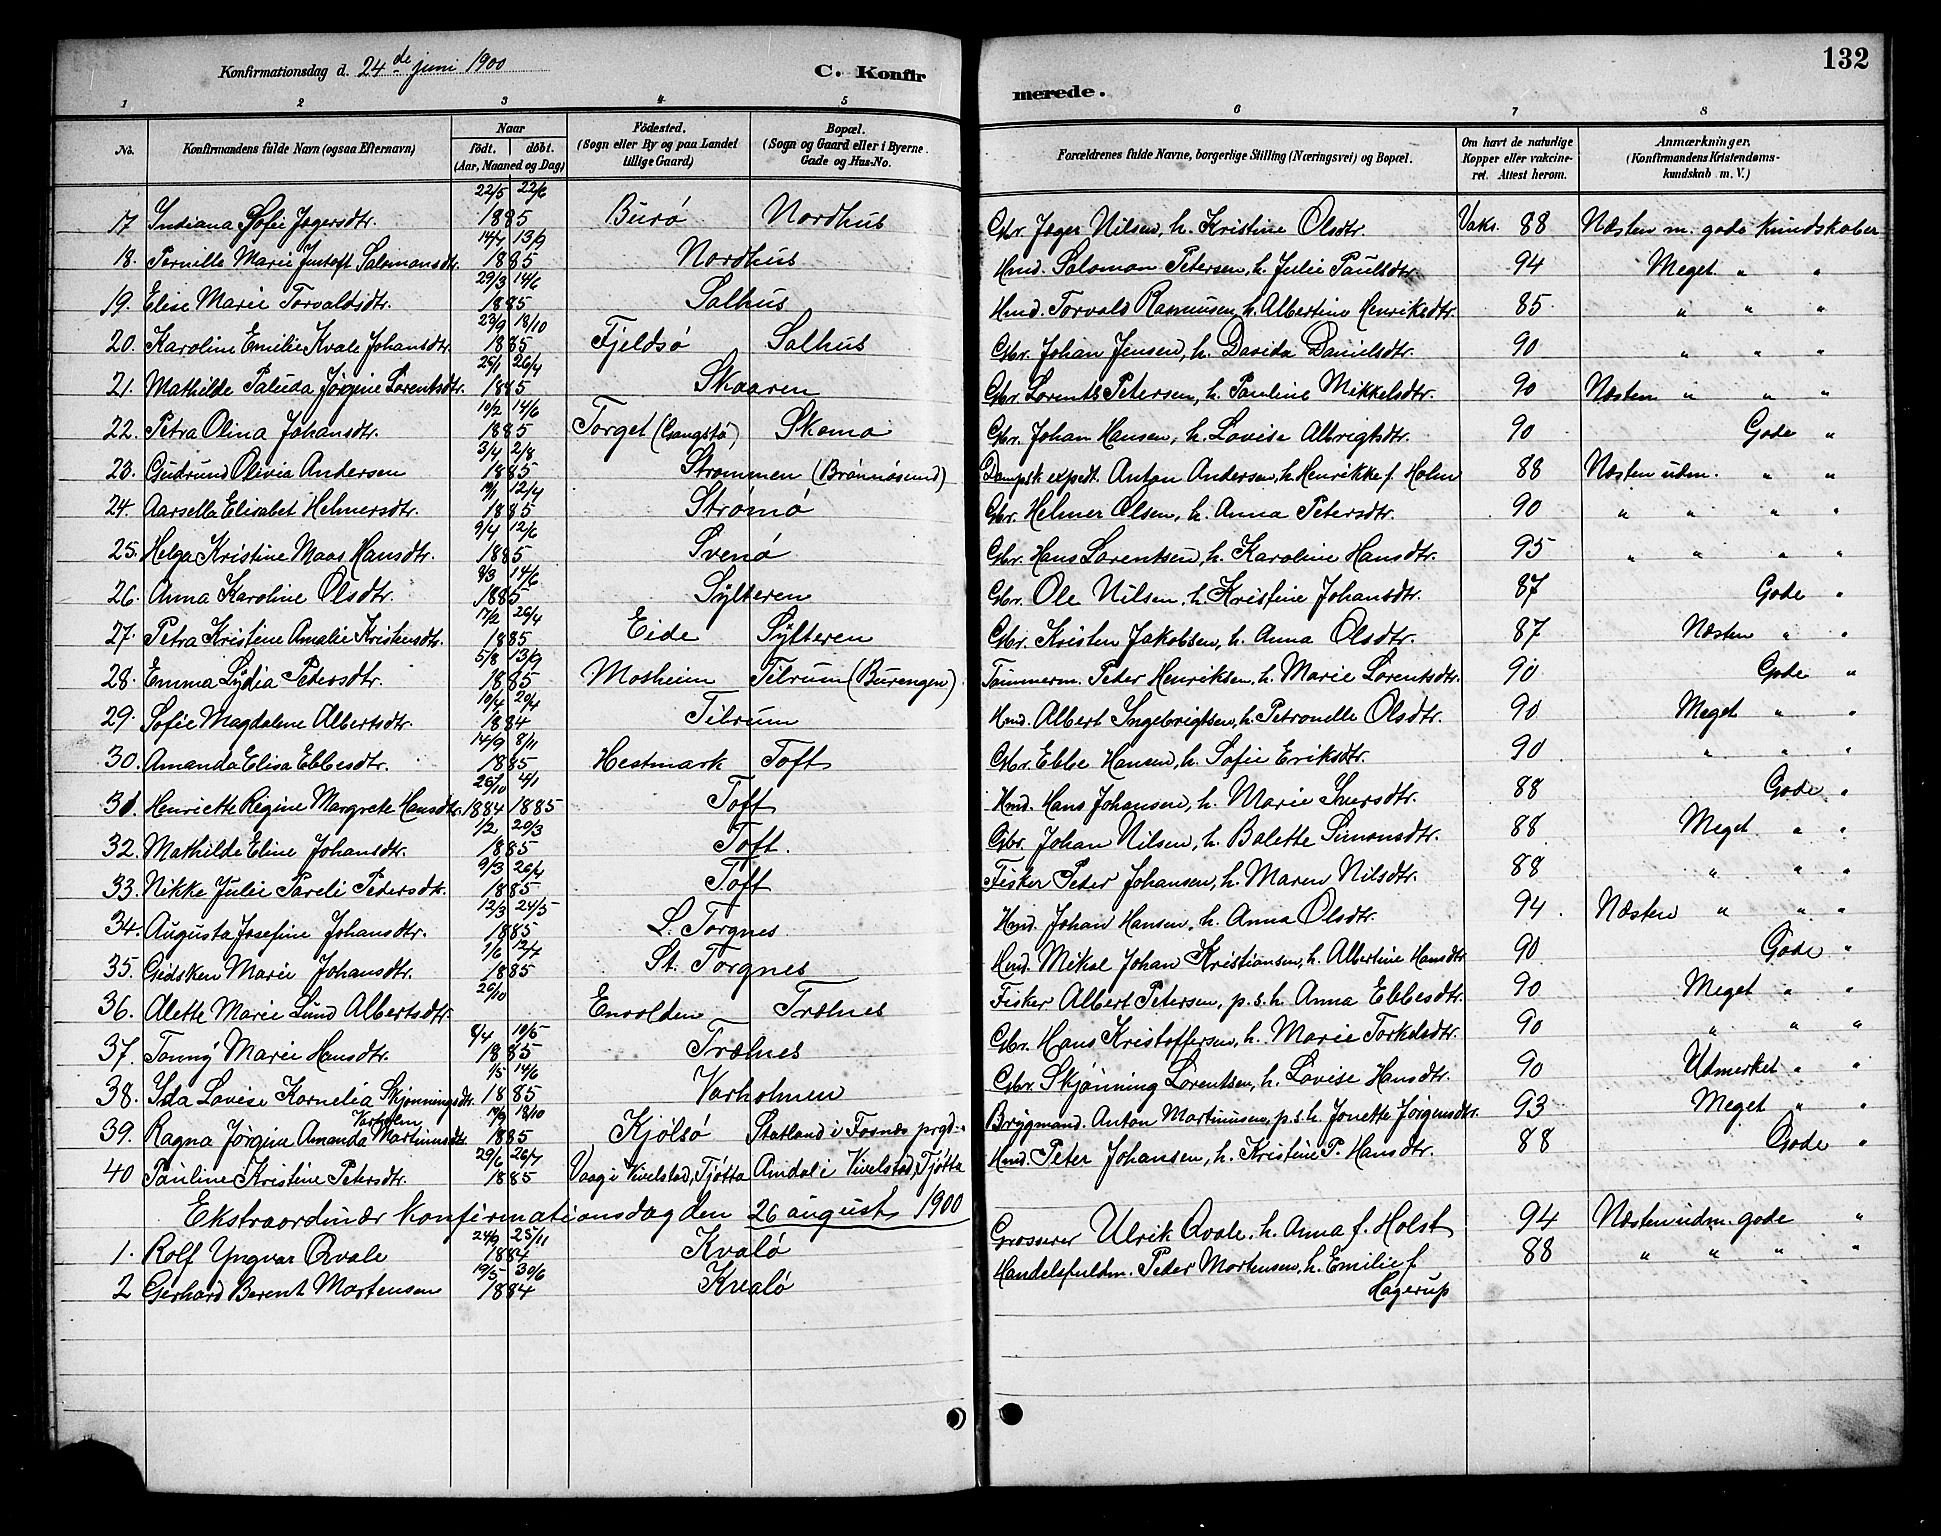 Konfirmationsdag d. 24de juni 1900
C. Konfirmerede.
132
1 2 3 4 5 6 7 8
No. Konfirmandens fulde Navn (ogsaa Efternavn) Naar födt. döbt. (Aar, Maaned og Dag) Födested. (Sogn eller By og paa Landet tillige Gaard) Bopæl. (Sogn og Gaard eller i Byerne Gade og Hus-No. Forældrenes fulde Navne, borgerlige Stilling (Næringsvei) og Bopæl. Om havt de naturlige Kopper eller vakcineret. Attest herom. Anmærkninger, (Konfirmandens Kristendomskundskab m. V.)
17 Indiana Sofie Jagersdtr. 22/5 22/6 1885 Burö Nordhus Gbr. Jager Nilsen, h. Kristine Olsdtr. Vaks. 88 Næsten m. gode kundskaber
18. Pernille Marie Justoft Salomonsdtr. 14/7 13/9 1885 Nordhus Hmd. Salomon Petersen, h. Julie Paulsdtr. 94 Meget " "
19. Elise Marie Torvaldsdtr. 29/3 14/6 1885 Salhus Hmd. Torvald Rasmusen, h. Albertine Henriksdtr. 85 " " "
20. Karoline Emilie Kvale Johansdtr. 23/9 18/10 1885 Tjeldsö Salhus Gbr. Johan Jensen, h. Davida Danielsdtr. 90 " " "
21. Mathilde Paluda Jörgine Lorentsdtr. 25/1 26/4 1885 Skaaren Gbr. Lorents Petersen, h. Pauline Mikkelsdtr. 90 Næsten " " "
22. Petra Olina Johansdtr. 10/2 14/6 1885 Torget Skomo Gbr. Johan Hansen, h. Lovise Albrigtsdtr. 90 Gode "
23. Gudrund Olivia Andersen 3/4 2/8 1885 Strommen (Brönnösund) Dampsk. expedt. Anton Andersen, h. Henrikke f. Holm 88 Næsten udm. " "
24. Aarsella Elisabet Helmersdtr. 12/4 1885 Strömö Gbr. Helmer Olsen, h. Anna Petersdtr. 90 " " " "
25. Helga Kristine Maas Hansdtr. 9/4 12/6 1885 Svenö Gbr. Hans Lorentsen, h. Karoline Hansdtr. 95 " " " "
26. Anna Karoline Olsdtr. 8/3 14/6 1885 Sylteren Gbr. Ole Nilsen, h. Kristine Johansdtr. 87 Gode "
27. Petra Kristine Amalie Kristensdtr. 17/2 26/4 1885 Eide Sylteren Gbr. Kristen Jakobsen, h. Anna Olsdtr. 87 Næsten " "
28. Emma Lydia Pedersdtr. 5/8 13/9 1885 Mosheim Tilrum (Burengen) Tömmerm. Peder Henriksen, h. Marie Lorentsdtr. 90 Gode "
29. Sofie Magdalene Albertsdtr. 10/4 20/4 1884 Tilrum Hmd. Albert Ingebrigtsen, h. Petronelle Olsdtr. 90 Meget " "
30. Amanda Elisa Ebbesdtr. 14/9 8/11 1885 Hestmark Toft Gbr. Ebbe Hansen, h. Sofie Eriksdtr. 90 " " "
31. Henriette Regine Margrete Hansdtr. 26/10 1884 4/1 1885 Toft Hmd. Hans Johansen, h. Marie Iversdtr. 88 Gode "
32. Mathilde Eline Johansdtr. 1/2 20/3 1885 Toft. Gbr. Johan Nilsen, h. Balette Simonsdtr. 88 Meget " "
33. Nikke Julie Pareli Pedersdtr. 9/3 26/4 1885 Toft Fisker Peder Johansen, h. Maren Nilsdtr. 88 " " "
34. Augusta Josefine Johansdtr. 12/3 24/5 1885 L. Torgnes Hmd. Johan Hansen, h. Anna Olsdtr. 94 Næsten " " "
35. Gidsken Marie Johansdtr. 1/6 12/7 1885 St. Torgnes Hmd. Mikal Johan Kristiansen, h. Albertine Hansdtr 90 Gode "
36. Alette Marie Lund Albertsdtr. 26/10 Envolden Trælnes Fisker Albert Petersen, p.s.h. Anna Ebbesdtr. 90 Meget " "
37. Tonny Marie Hansdtr. 8/4 10/5 1885 Trælnes Gbr. Hans Kristoffersen, h. Marie Torkelsdtr. 90 " " "
38. Ida Lovise Kornelia Skjönningsdtr. 1/5 14/6 1885 Varholmen Gbr. Skjönning Lorentsen, h. Lovise Hansdtr. 90 Udmerket " "
39. Ragna Jörgine Amanda Varholm Martinusdtr. 18/10 1885 Kjölsö Statland i Fosnæs prgd. Brygmand. Anton Martinusen, p.s.h. Jonette Jörgensdtr. 93 Meget " "
40 Pauline Kristine Petersdtr. 29/6 26/7 1885 Vaag i Vivelstad, Tjötta Amdal i Vivelstad, Tjötta Hmd. Peter Johansen, h. Kristine P. Hansdtr. 88 Gode "
Ekstraordinær konfirmationsdag den 26 august 1900
1. Rolf Yngvar Qvale 24/9 25/11 1884 Kvalö Grosserer Ulrik Qvale, h. Anna f. Holst 94 Næsten udm. gode "
2 Gerhard Berent Mortensen 19/5 30/6 1884 Kvalö Handelsfuldm. Peder Mortensen, h. Emilie f. Hagerup 88 " " " "